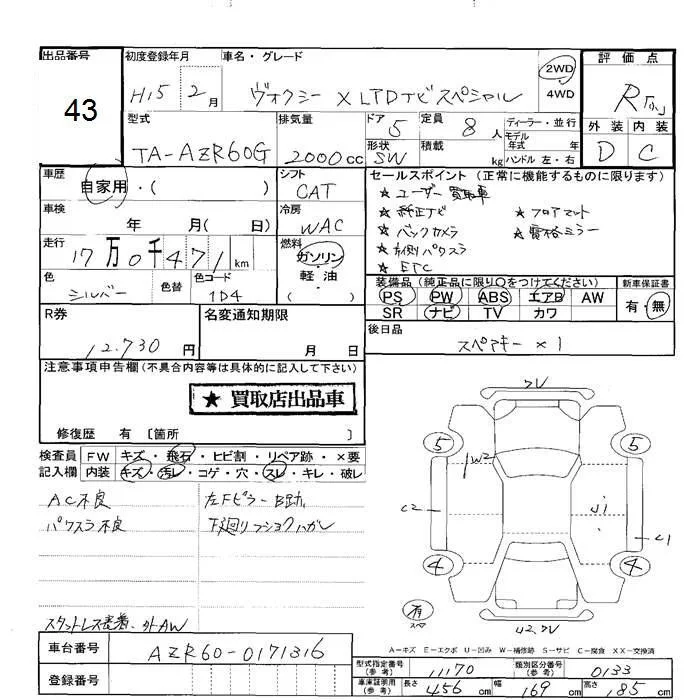 出品番号 初度登録年月 車名・グレード 2WD 4WD 評価点
43 H15 2月 ヴォクシー X LTDナビスペシャル R
外装 内装
D C
型式 排気量 ドア 定員 ディーラー・並行
TA-AZR60G 2000cc 5 8人 モデル年式 年
形状 SW 積載 kg ハンドル 左・右
車歴 シフト セールスポイント (正常に機能するものに限ります)
自家用・( ) CAT
★ ユーザー買取車
車検 冷房 ★ 純正ナビ ★ フロアマット
年 月( 日) WAC ★ バックカメラ ★ 電格ミラー
走行 燃料 ★ 左側パワスラ
17万0千471km ガソリン・軽油・( ) ★ ETC
色 色替 色コード
シルバー 1D4
装備品 (純正品に限り○をつけてください) 新車保証書
PS PW ABS エアB AW 有・無
SR ナビ TV カワ
R券 名変通知期限 後日品
12.730円 月 日 スペアキー×1
注意事項申告欄(不具合内容等は具体的に記入して下さい)
★ 買取店出品車
修復歴 有 〔箇所 〕
検査員記入欄 FW キズ・飛石・ヒビ割・リペア跡・×要
内装 キズ・汚レ・コゲ・穴・スレ・キレ・破レ
AC不良 左Fピラー B助
パワスラ不良 下廻りフショクハガレ
スタットレス装着、外AW
2V
5 5
W2
C2 C1
4 4
有 スペア
42.2V
A-キズ E-エクボ U-凹み W-補修跡 S-サビ C-腐食 XX-交換済
車台番号 AZR60-0171316
登録番号
型式指定番号(参考) 11170 類別区分番号(参考) 0133
車庫証明用(参考) 長さ 456cm 幅 169cm 高さ 185cm